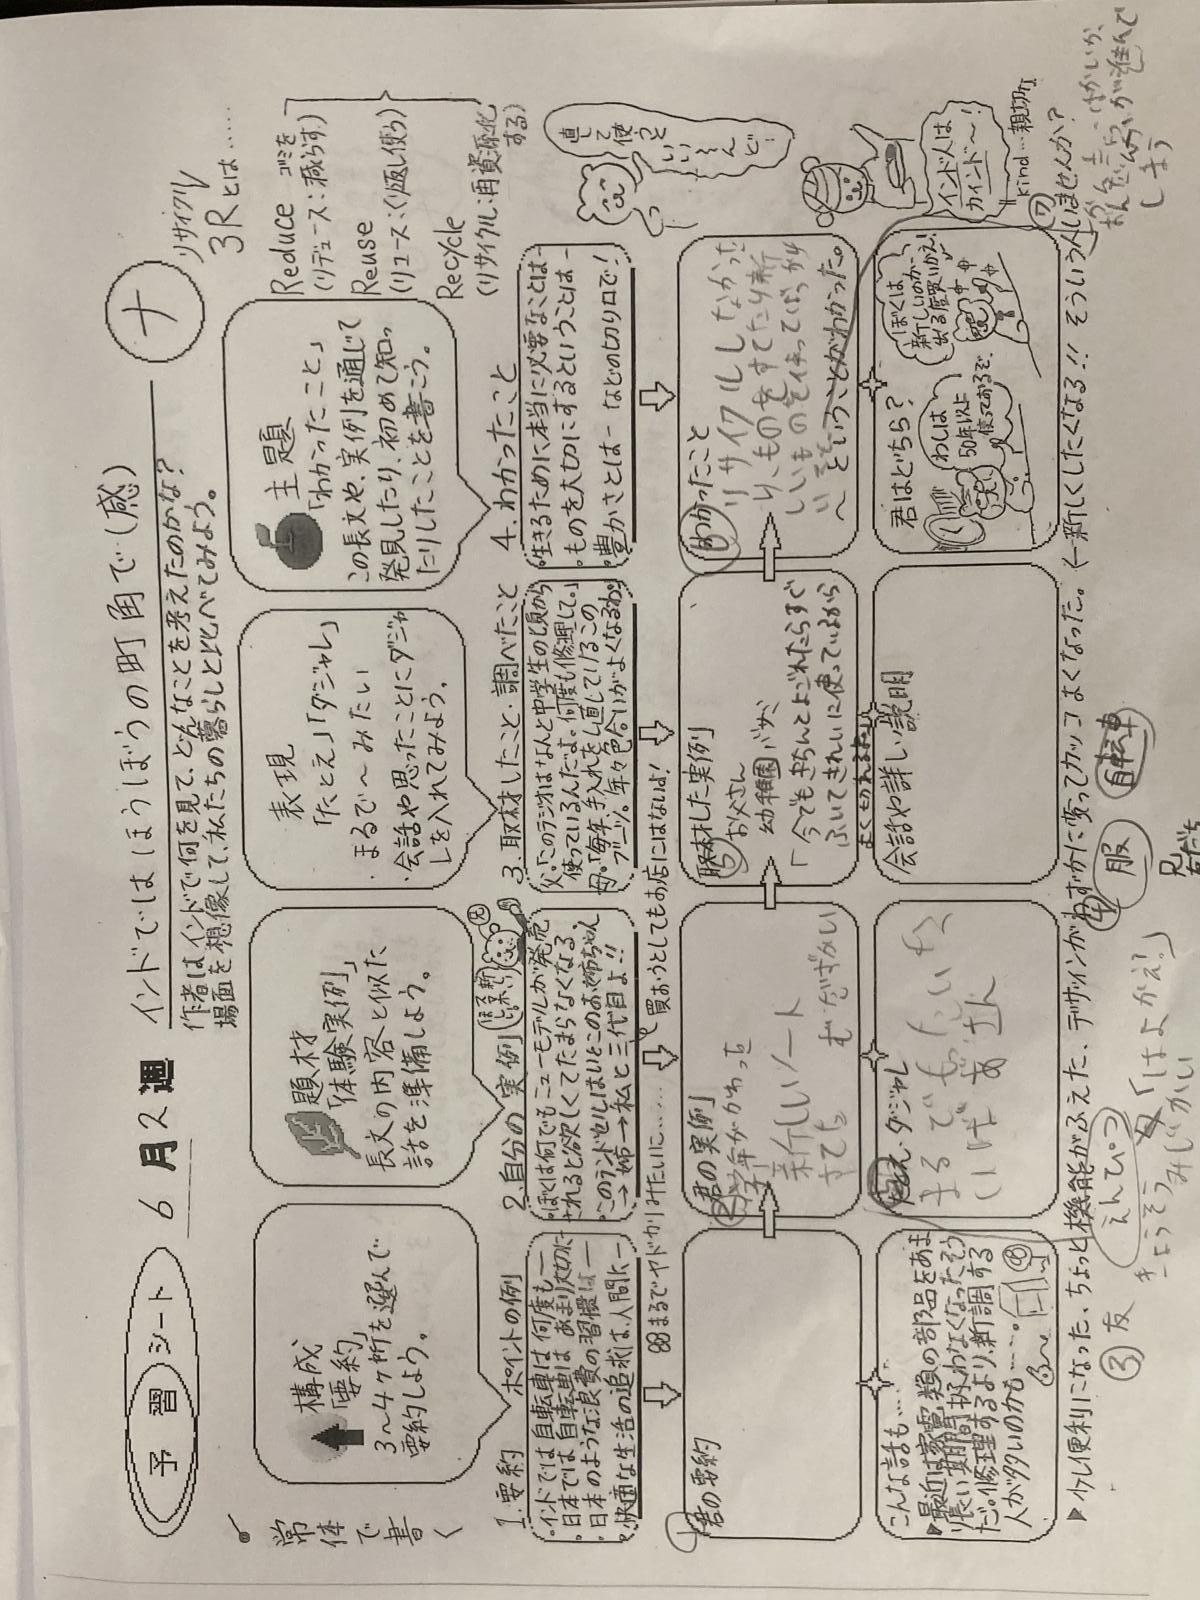 予習シート
6月2週
インドではほうぼうの町角で(感)
ナ
作者はインドで何を見て、どんなことを考えたのかな?
場面を想像して、私たちの暮らしと比べてみよう。
リサイクル
3Rとは……
Reduce ゴミを
(リデュース:減らす)
Reuse
(リユース:くり返し使う)
Recycle
(リサイクル:再資源化
する)
常体で書く
構成
「要約」
3〜4ヶ所を選んで
要約しよう。
題材
「体験実例」
長文の内容と似た
話を準備しよう。
表現
「たとえ」「ダジャレ」
・まるで〜みたい
・会話や思ったことにダジャ
レを入れてみよう。
主題
「わかったこと」
この長文や、実例を通じて
発見したり、初めて知っ
たりしたことを書こう。
1.要約 ポイントの例
・インドでは自転車は何度も—
・日本では自転車はあまり大切に—
・日本のような浪費の習慣は—
・快適な生活の追求は、人間に—
2.自分の実例
・ぼくは何でもニューモデルが発売
されると欲しくてたまらなくなる
・このランドセルはいとこのお姉ちゃん
→姉→私と三代目よ!!
3.取材したこと・調べたこと
父「このラジオはなんと中学生の頃から
使っているんだよ。何度も修理して。」
母「毎年、手入れをし直しているこの
ブーツ。年々色合いがよくなるわ。
買おうとしてもお店にはないよ!
4.わかったこと
・生きるために本当に必要なことは—
・ものを大切にするということは—
・豊かさとは— などの切り口で!
直して使うといいぞんど!
まるでヤドカリみたいに……
君の要約
君の実例
学年がかわった
新しいノート
すてた
むだづかい
取材した実例
お父さん
幼稚園 バサミ
「今でもきちんとよごれたらすぐ
ふいてきれいに使っているから
よく切れるよ」
わかったこと
リサイクルしなかった
り、ものをすてたり新
しいものを使ってばっかり
いる
〜ということがわかった。
インド人は
カインド〜!
kind…親切な
こんな話も…
▶最近は家電類の部品をあま
り長い期間扱わなくなったそう
だ。修理するより、新調する
人が多いのかも……。
たとえ・ダジャレ
まるで
会話や詳しい説明
君はどちら?
わしは
50年以上
使っておるぞ。
ぼくは、
新しいのが
出る度買いかえ!
▶少し便利になった、ちょっと機能がふえた、デザインがわずかに変ってカッコよくなった。←新しくしたくなる!! そういう人いませんか?
③友
えんぴつ
きょうそう
みじかい
「はよかえ!」
④
服
自転車
兄
友だち
が進んで
しまう